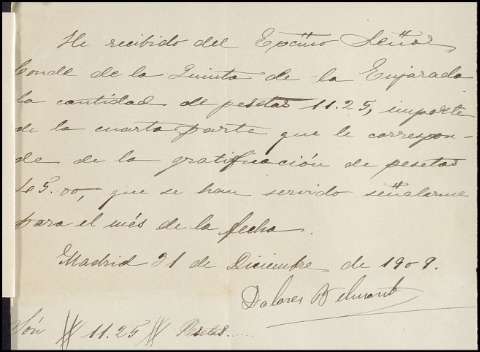 He recibido del Excmo Señor
Conde de la Quinta de la Enjarada
la cantidad de pesetas 11.25, importe
de la cuarta parte que le correspon-
de de la gratificación de pesetas
45.00, que se han servido señalarme
para el més de la fecha.
Madrid 31 de Diciembre de 1909.
Dolores Belmonte
Són # 11.25 # Pesetas.....